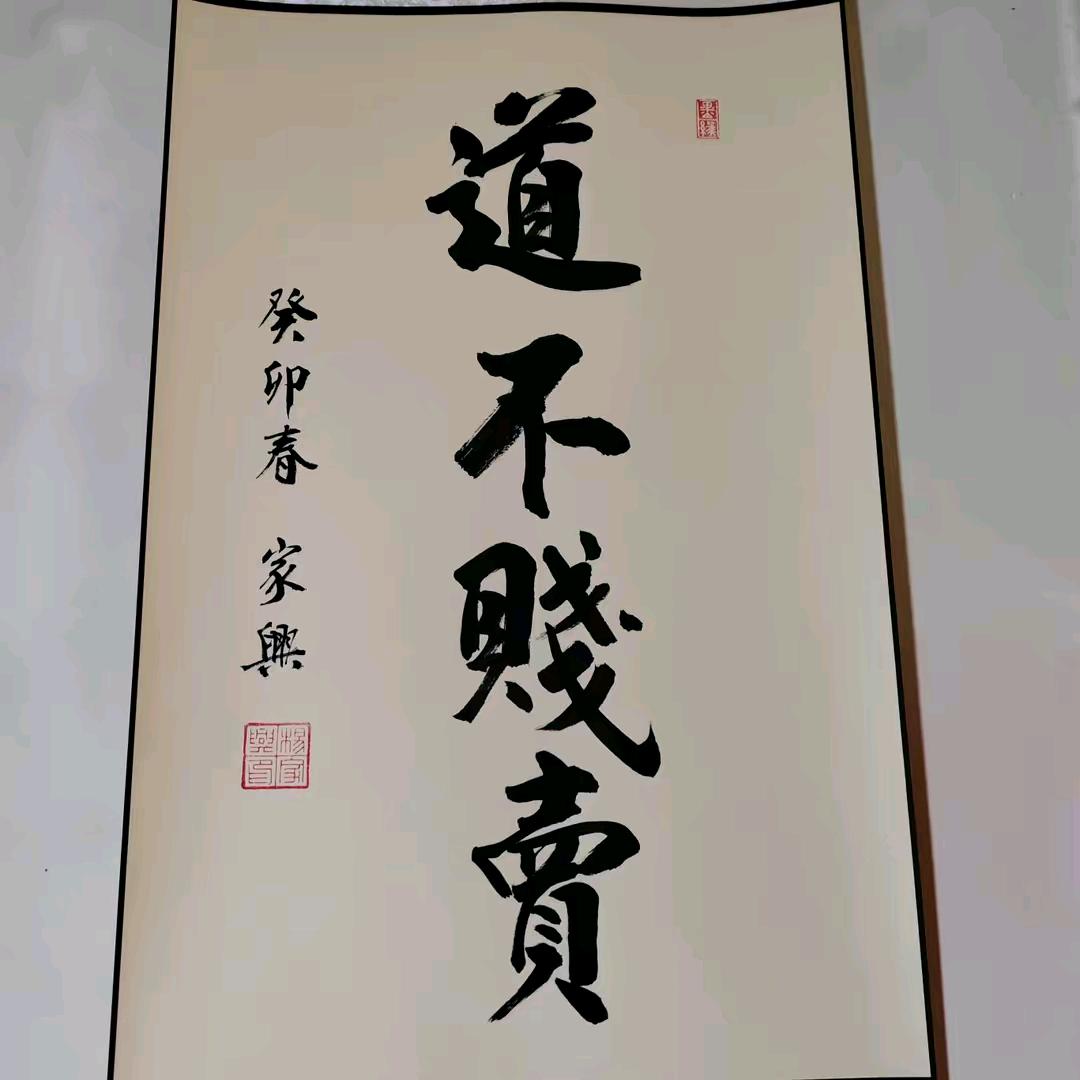 道不賤賣
癸卯春 家興
楊家興印